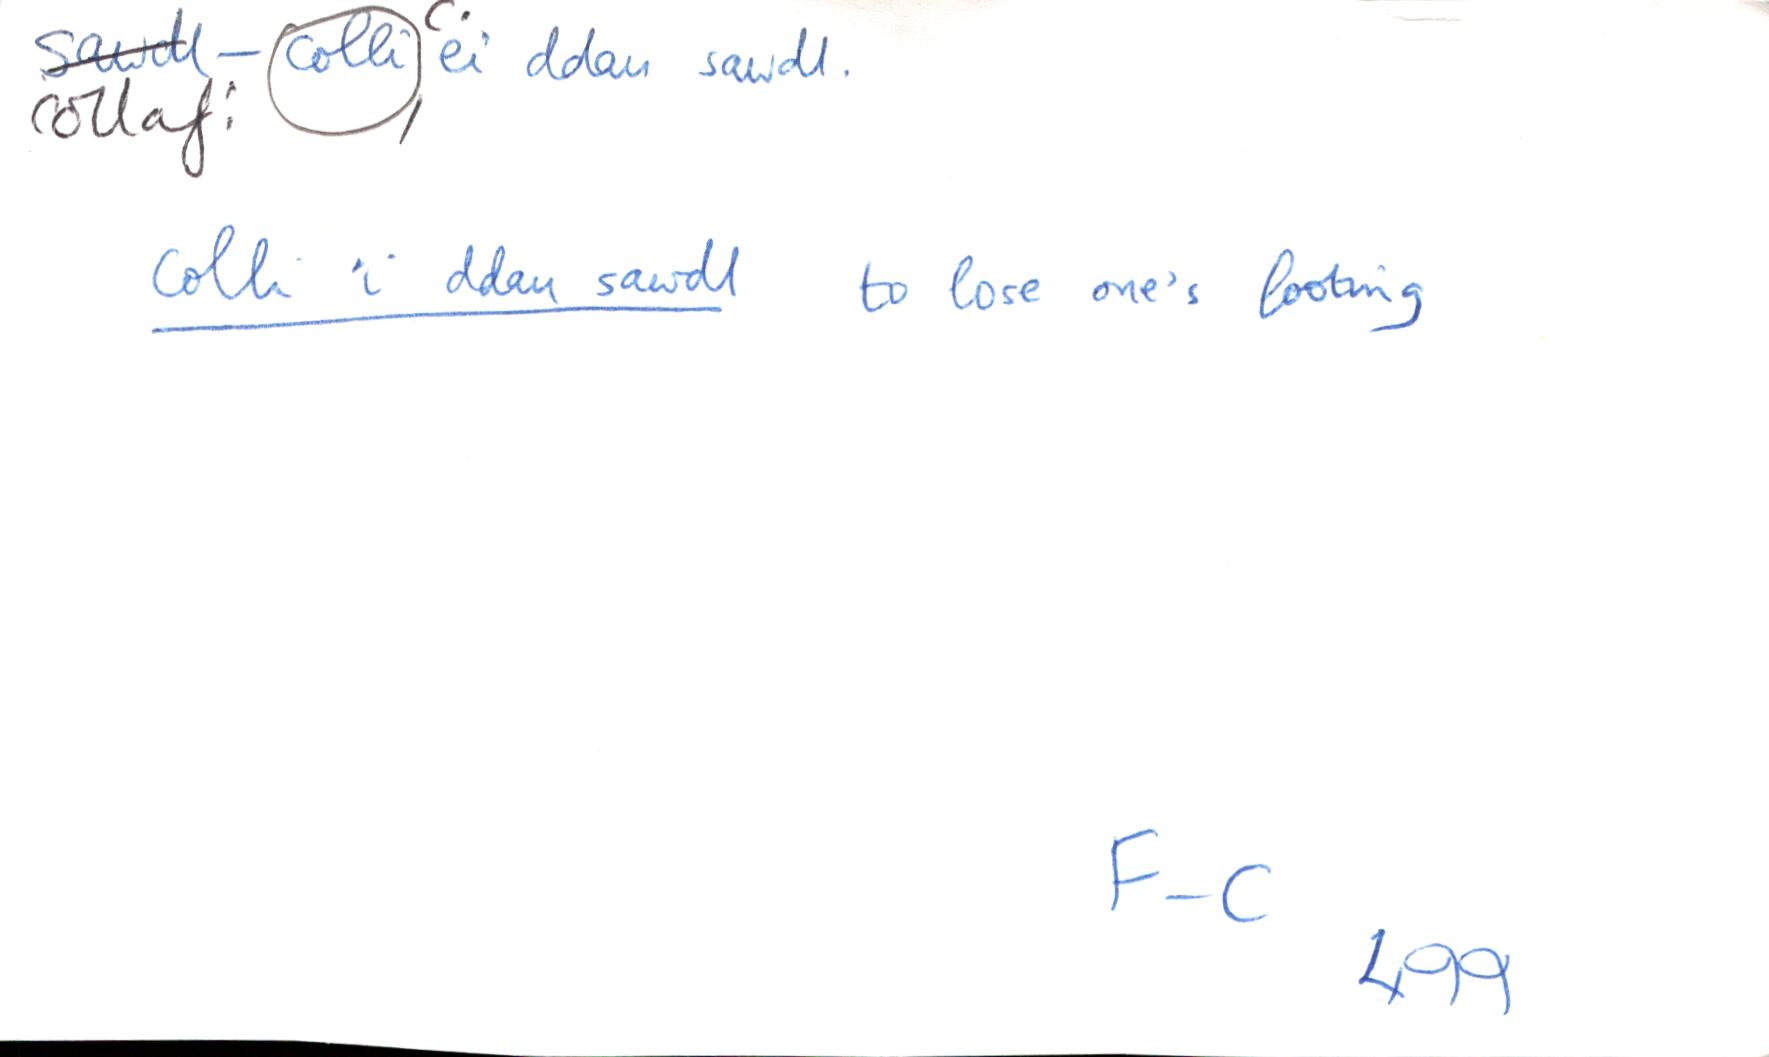 sawdl – colli c. ei ddau sawdl.
collaf:
Colli 'i ddau sawdl to lose one's footing
F–C
499